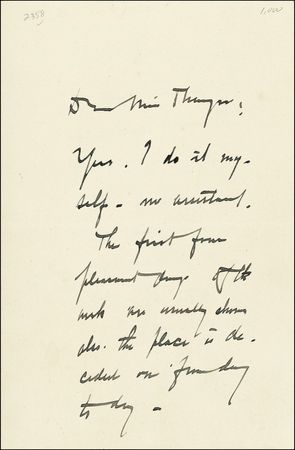 2358
1,00
Dear Miss Thayer:
Yes. I do it my-
self - no assistant.
The first four
pleasant days of the
week are usually
the place is de-
cided on from day
to day -